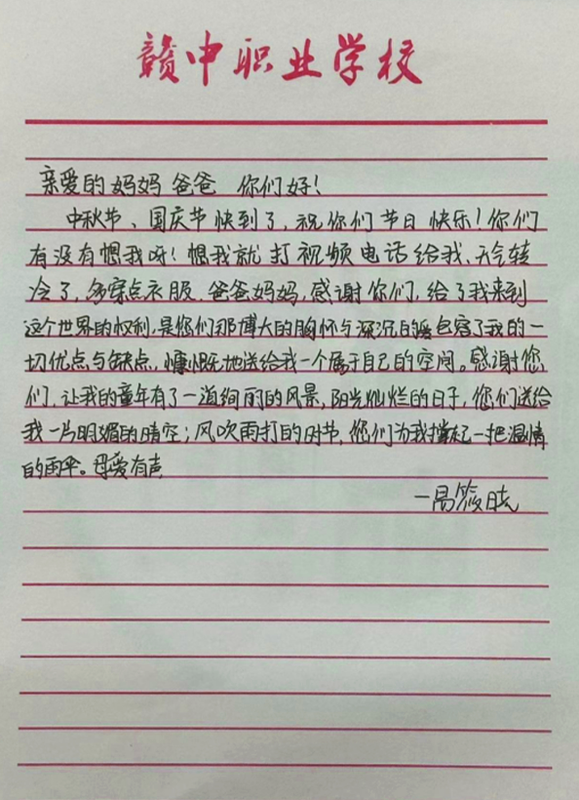 赣中职业学校
亲爱的妈妈 爸爸 你们好！
中秋节、国庆节快到了，祝你们节日快乐！你们
有没有想我呀！想我就打视频电话给我、天气转
冷了，多穿点衣服、爸爸妈妈，感谢你们，给了我来到
这个世界的权利，是您们那博大的胸怀与深沉的爱包容了我的一
切优点与缺点，慷慨无地送给我一个属于自己的空间。感谢您
们，让我的童年有了一道绚丽的风景，阳光灿烂的日子，您们送给
我一片明媚的晴空；风吹雨打的时节，您们为我撑起一把温情
的雨伞。母爱有声